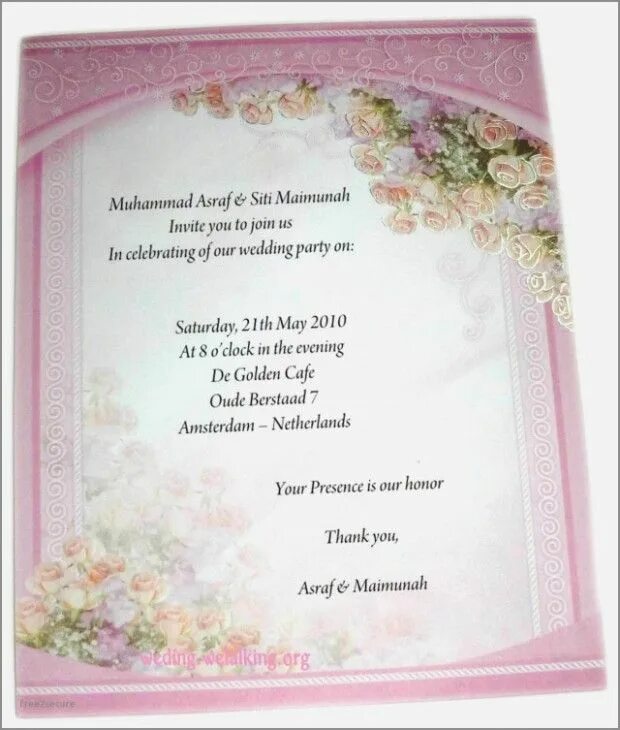 Muhammad Asraf & Siti Maimunah
Invite you to join us
In celebrating of our wedding party on:
Saturday, 21th May 2010
At 8 o'clock in the evening
De Golden Cafe
Oude Berstaad 7
Amsterdam – Netherlands
Your Presence is our honor
Thank you,
Asraf & Maimunah
weding-wetalking.org
free2secure